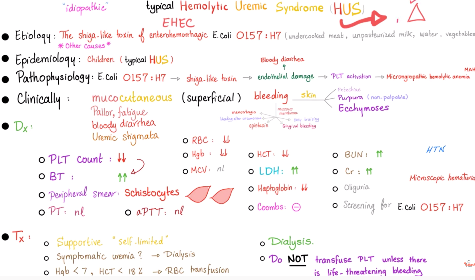 "idiopathic"
typical Hemolytic Uremic Syndrome (HUS)
EHEC
Etiology: The shiga-like toxin of enterohemorrhagic E.Coli O157:H7 (undercooked meat, unpasteurized milk, water, vegetables
*Other causes*
Epidemiology: Children (typical HUS)
Bloody diarrhea
Pathophysiology: E.Coli O157:H7 → shiga-like toxin → endothelial damage → PLT activation → Microangiopathic hemolytic anemia
Clinically: mucocutaneous (superficial) bleeding skin
Petechiae
Purpura (non-palpable)
Ecchymoses
Pallor, fatigue
bloody diarrhea
Uremic stigmata
epistaxis
Gingival bleeding
Dx:
PLT count: ↓↓
BT: ↑↑
Peripheral smear: Schistocytes
PT: nl
aPTT: nl
RBC: ↓↓
Hgb: ↓↓
MCV: nl
HCT: ↓↓
LDH: ↑↑
Haptoglobin: ↓↓
Coombs: ⊖
BUN: ↑↑
Cr: ↑↑
Oliguria
Screening for E.Coli O157:H7
HTN
Microscopic hematuria
Tx:
Supportive "self-limited"
Symptomatic uremia? → Dialysis
Hgb < 7, HCT < 18% → RBC transfusion
Dialysis.
Do NOT transfuse PLT unless there is life-threatening bleeding